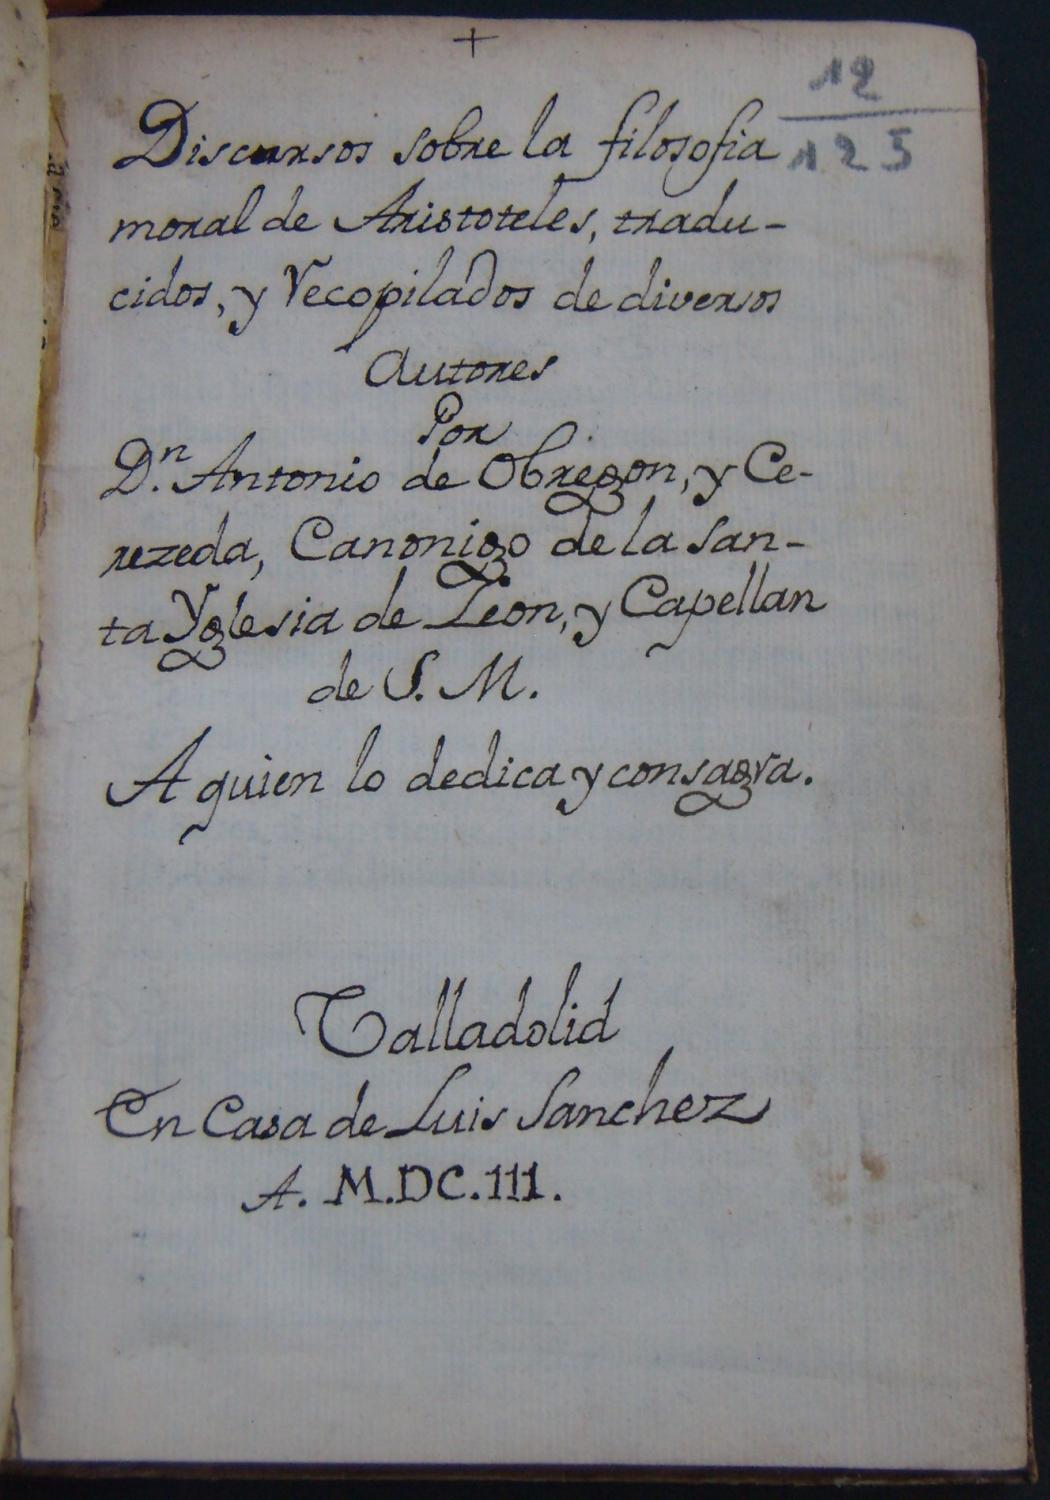 +
12
125
Discursos sobre la filosofia
moral de Aristoteles, tradu-
cidos, y recopilados de diversos
Autores
Por
D.n Antonio de Obregon, y Ce-
rezeda, Canonigo de la San-
ta Yglesia de Leon, y Capellan
de S. M.
A quien lo dedica y consagra.
Valladolid
En Casa de Luis Sanchez
A. M.DC.III.